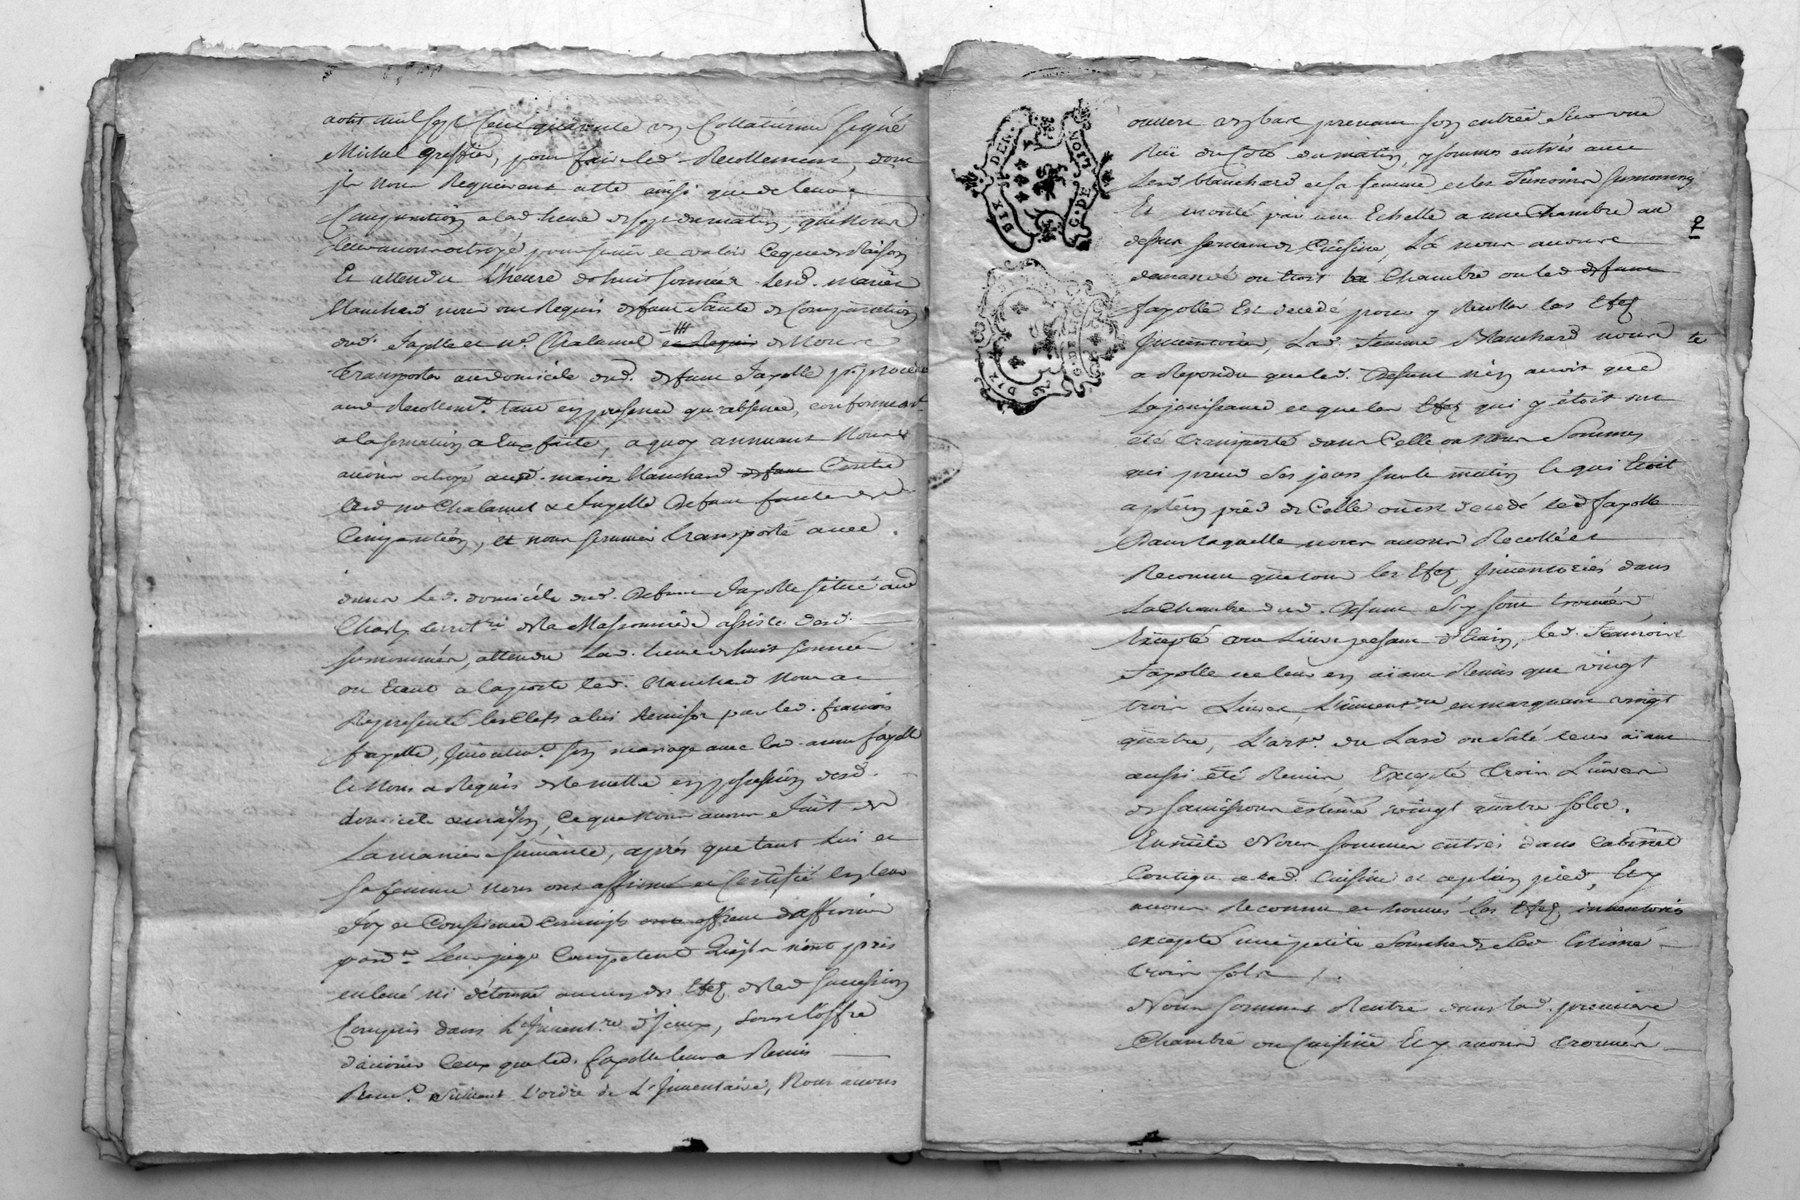 aout mil sept cent quarante un Collationné signé
Michel greffier, pour faire led. Recollement, dont
ils nous Requierent acte ainsi que de leur
Comparution a lad. heure de sept du matin, que nous
leur avons octroyé pour servir et valoir ce que de Raison
Et attendu L'heure de huit sonnée Lesd. mariés
blanchard nous ont Requis defaut faute de Comparution
dud. fayolle et me. Chalamel et Requis de Nous
Transporter au domicile dud. defunt fayolle pr. y proceder
aud. Recollemt. tant en presence qu'absence, conformemt.
a la sommation a Eux faite, a quoy annuant Nous
avons octroyé ausd. mariés blanchard defaut Contre
lesd. me Chalamel & fayolle Defaut faute de
Comparution, et nous sommes transporté avec
dans Led. domicile dud. Defunt fayolle situé aud.
de la Massonniere assisté desd.
susnommés, attendu Lad. heure de huit sonnée
ou Etant a la porte led. blanchard Nous a
Representé les Clefs a lui Remises par led. francois
fayolle, son mariage avec lad. anne fayolle
et Nous a Requis de le mettre en possession dud.
domicile ou maison, ce que nous avons fait de
La maniere suivante, après que tant Lui et
sa femme nous ont affirmé et Certifié en leur
foy et Conscience offrant d'affirmer
pardt. Leur juge Competent qu'ils n'ont pris
enlevé ni detourné aucuns des Effets de lad. succession
Compris dans L'Inventre. d'Iceux, sous l'offre
d'avouer Ceux que led. fayolle leur a Remis
suivant L'ordre de L'Inventaire, Nous avons
DIX DEN.
G. DE LION
ouvert en bas prenant son entrée sur une
Rüe du Coté du matin, y sommes entrés avec
Led. blanchard et sa femme et les Temoins susnommés
Et monté par une Echelle a une Chambre au
dessus servant de Cuisine, La nous avons
demandé ou Etoit la Chambre ou led. defunt
fayolle Est decedé pour y Recoller les Effets
Inventoriés, Lad. femme Blanchard nous
a Repondu que led. Defunt n'en avoit que
La jouissance et que les Effets qui y étoit ont
été transporté dans Celle ou Nous Sommes
qui prend ses jours sur le matin le qui Etoit
a plein pied de Celle ou est decedé led. fayolle
Dans laquelle nous avons Recollé et
Reconnu que tous les Effets Inventoriés dans
La Chambre dud. Defunt s'y sont trouvés
Excepté une Livre pesant d'Etain, led. francois
fayolle ne leur en aiant Remis que vingt
trois Livres, L'inventre en marquant vingt
quatre, L'art. du Lard ou Salé leur aiant
aussi été Remis, Excepté trois Livres
de estimé vingt quatre sols.
Ensuite Nous sommes entrés dans Cabinet
Contigu a lad. Cuisine et a plein pied, Et y
avons Reconnu et trouvés les Effets inventoriés
excepté une petite estimé
trois sols /.
Nous sommes Rentré dans lad. premiere
Chambre ou Cuisine Et y avons trouvés